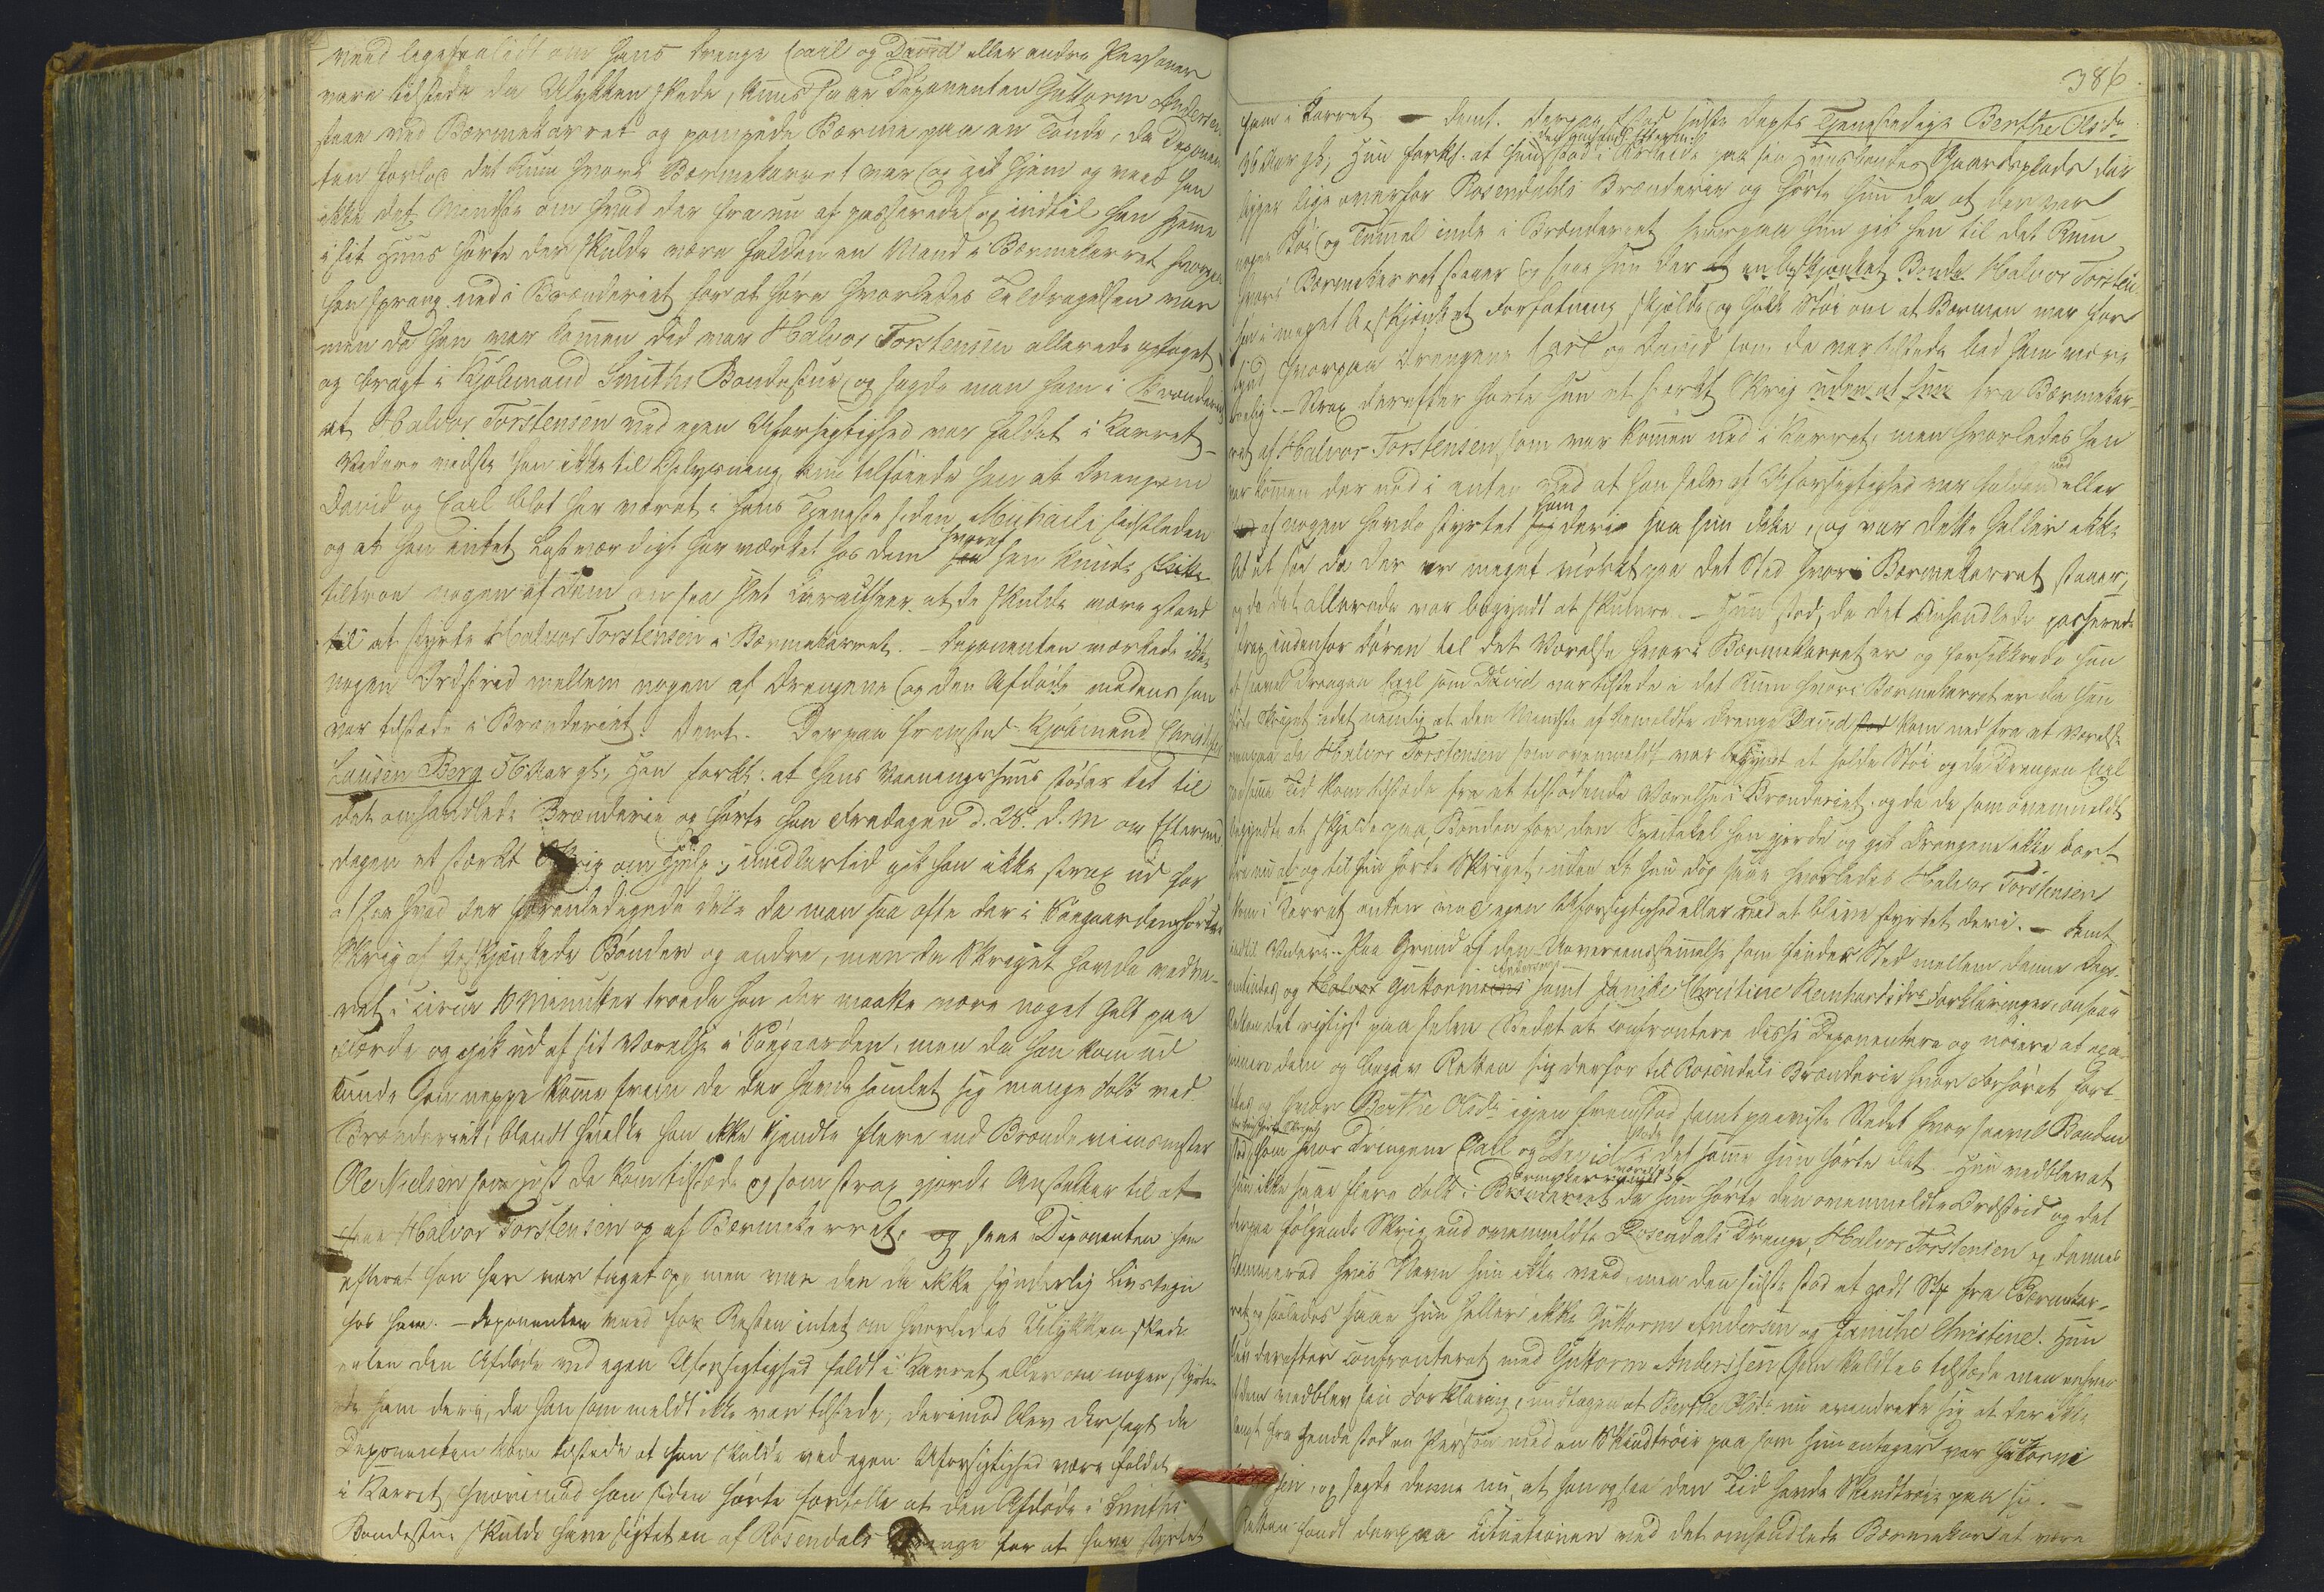 veed ligesaalidt om hans Drenge Carl og David eller andre Personer
vare tilstede da Ulykken skede, kuns saae Deponenten Guttorm Andersen
staae ved Bærmekarret og pompede Bærme paa en Tønde, da Deponen-
ten forlod det Rum hvori Bærmekarret var og gik hjem og veed han
ikke det Mindste om hvad der fra nu af passerede og indtil han hjemme
i sit Huus hørte der skulde være falden en Mand i Bærmekarret hvorpaa
han sprang ned i Brænderiet for at høre hvorledes Tildragelsen var
men da han var kommen did var Halvor Torstensen allerede optaget
og bragt i Kjøbmand Smiths Bondestue og sagde man ham i Brænderiet
at Halvor Torstensen ved egen Uforsigtighed var faldet i Karret –
Videre vidste han ikke til Oplysning, kun tilføiede han at Drengene
David og Carl blot har været i hans Tjeneste siden Michaeli sidstleden
og at han intet Lastværdigt har mærket hos dem hvoraf han kunde
tiltroe nogen af dem en saa slet Caracteer at de skulde være istand
til at styrte Halvor Torstensen i Bærmekarret. – Deponenten mærkede ikke
nogen Ordstrid mellem nogen af Drengene og den Afdøde medens han
var tilstede i Brænderiet. Demt. Derpaa fremstod Kjøbmand Christopher
Lausen Berg 56 Aar gl., han forkl. at hans Vaaningshuus støder tet til
det omhandlede Brænderie og hørte han Fredagen d. 28d. d. M om Eftermid-
dagen et stærkt Skrig om Hjelp; imidlertid gik han ikke strax ud for
at see hvad der foranledigede dette da man saa ofte der i Søegaarden hører
Skrig af beskjænkede Bønder og andre, men da Skriget havde vedva-
ret i circa 10 Minutter troede han der maatte være noget galt paa
Færde og gik ud af sit Værelse i Søegaarden, men da han kom ud
kunde han neppe komme frem da der havde samlet sig mange Folk ved
Brænderiet, blandt hvilke han ikke kjendte flere end Brændeviinsmester
Ole Nielsen som just da kom tilstede og som strax gjorde Anstalter til at
faae Halvor Torstensen op af Bærmekarret, og saae Deponenten ham
efterat han her var taget op, men var der da ikke synderlig Livstegn
hos ham. – Deponenten veed for Resten intet om hvorledes Ulykken skede
enten den Afdøde ved egen Uforsigtighed faldt i Karret eller om nogen styrte-
de ham deri, da han som meldt ikke var tilstede, derimod blev der sagt da
Deponenten kom tilstede at han skulde ved egen Uforsigtighed være faldet
i Karret, hvorimod han siden hørte fortælle at den Afdøde i Smiths
Bondestue skulde have sigtet en af Rosendals Drenge for at have styrtet
386
ham i Karret – Demt. Derpaa fremstod sidste Depts Tjenestepige Berthe Olsdr
36 Aar gl, Hun forkl. at hun den omhandl. Efterm: stod i Arbeide paa sin Huusbondes Gaardsplads der
ligger lige overfor Rosendahls Brænderie og hørte hun da at der var
nogen Støi og Tummel inde i Brænderiet hvorpaa hun gik hen til det Rum
hvori Bærmekarret staaer og saae hun der en beskjænket Bonde Halvor Torsten-
sen i meget beskjænket Forfatning, skjældte og holdt Støi om at Bærmen var for
tynd hvorpaa Drengene Carl og David som da var tilstede bad ham være
rolig. – Strax derefter hørte hun et stærkt Skrig fra Bærmekar-
ret af Halvor Torstensen, som var kommen ned i Karret, men hvorledes han
var kommen der ned i enten ved at han selv af Uforsigtighed var falden ned eller
af nogen havde styrtet ham deri saa hun ikke, og var dette heller ikke
let at see da der er meget mørkt paa det Sted hvor Bærmekarret staaer,
og da det allerede var begyndt at skumre. – Hun stod, da det Omhandlede passerede
strax indenfor Døren til det Værelse hvori Bærmekarret er og forsikkrede hun
at saavel Drengen Carl som David var tilstede i det Rum hvori Bærmekarret er da hun
hørte Skriget idet nemlig at den Mindste af bemeldte Drenge David kom ned fra et Værelse
ovenpaa da Halvor Torstensen som ovenmeldt var begyndt at holde Støi og da Drengen Carl
paa samme Tid kom tilstede fra et tilstødende Værelse i Brænderiet og da de som ovenmeldt
begyndte at skjelde paa Bonden for den Spectakel han gjorde og gik Drengene ikke bort
fra nu af og til hun hørte Skriget, uden at hun dog saae hvorledes Halvor Torstensen
kom i Karret enten ved egen Uforsigtighed eller ved at blive styrtet deri. – Demt
indtil Videre. – Paa Grund af den Uoverensstemmelse som finder Sted mellem denne Depo-
nentindes og Guttorm Andersens samt Janike Christine Reinhartsdrs Forklaringer, ansaae
Retten det rigtigst paa selve Stedet at confrontere disse Deponentere og nøiere at exa-
minere dem og begav Retten sig derfor til Rosendals Brænderie hvor Forhøret fort-
sattes og hvor Berthe Olsdr igjen fremstod samt paaviste Stedet hvor saavel Bonden
stod, som hvor Drengene Carl og David stode i det samme hun hørte det. Hun vedblev at
hun ikke saae flere Folk i Bærmekarrummet da hun hørte den ovenmeldte Ordstrid og det
derpaa følgende Skrig end ovenmeldte Rosendals Drenge, Halvor Torstensen og dennes
Kammerad hvis Navn hun ikke veed, men den sidste stod et godt Stk fra Bærmekar-
ret og saaledes saae hun heller ikke Guttorm Andersen og Janiche Christine. Hun
blev derefter confronteret med Guttorm Anderssen som kaldtes tilstede men enhver
af dem vedblev sin Forklaring, undtagen at Berthe Olsdr nu erindrede sig at der ikke
langt fra hende stod en Person med en Skindtrøie paa som hun antager var Guttorm
og sagde denne nu at han ogsaa den Tid havde Skindtrøie paa sig. –
Retten fandt derpaa Situationen ved det omhandlede Bærmekar at være